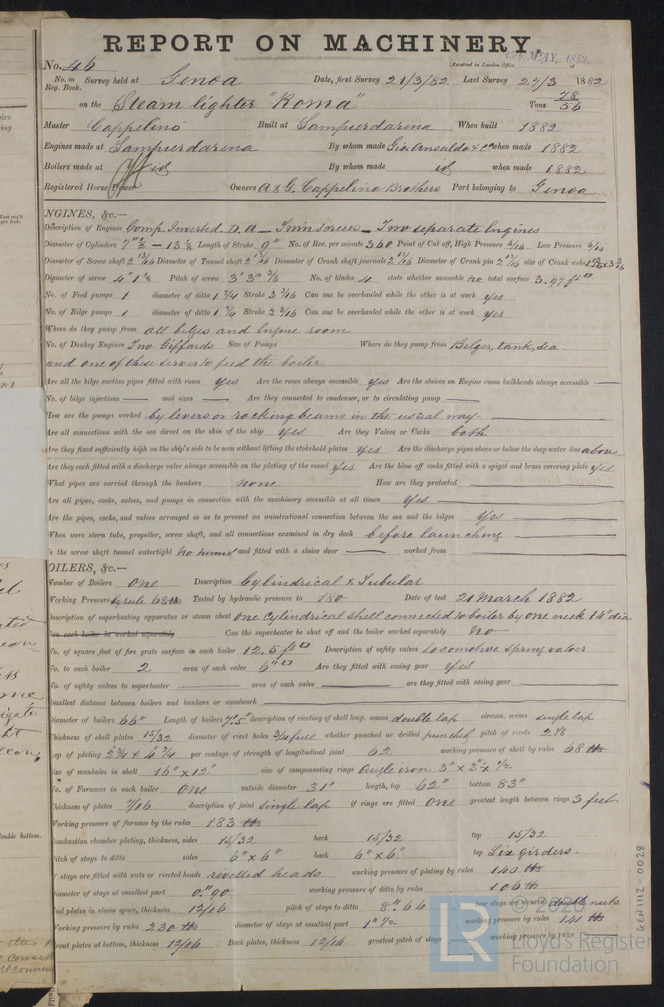 REPORT ON MACHINERY.
15th MAY. 1882
No. 46 Received at London Office 18
No. in Survey held at Genoa Date, first Survey 21/3/82 Last Survey 24/3 1882
Reg. Book.
on the Steam lighter "Roma" Tons 78 56
Master Cappelino Built at Sampierdarena When built 1882
Engines made at Sampierdarena By whom made Gio Ansaldo & Co when made 1882
Boilers made at id By whom made id when made 1882
Registered Horse Power Owners A & G. Cappelino Brothers Port belonging to Genoa
NGINES, &c.—
Description of Engines Comp. Inverted. D. A — Twin screws — Two separate Engines
Diameter of Cylinders 7" ½ – 13 ½ Length of Stroke 9" No. of Rev. per minute 360 Point of Cut off, High Pressure 6/10 Low Pressure 6/10
Diameter of Screw shaft 2 13/16 Diameter of Tunnel shaft 2 13/16 Diameter of Crank shaft journals 2 13/16 Diameter of Crank pin 2 13/16 size of Crank webs
Diameter of screw 4" 1½ Pitch of screw 3' 3" 3/8 No. of blades 4 state whether moveable no total surface 3.97 ft□
No. of Feed pumps 1 diameter of ditto 1 3/4 Stroke 3 3/16 Can one be overhauled while the other is at work yes
No. of Bilge pumps 1 diameter of ditto 1 3/4 Stroke 3 3/16 Can one be overhauled while the other is at work yes
Where do they pump from all bilges and Engine room
No. of Donkey Engines Two Giffards Size of Pumps Where do they pump from Bilges, tank, sea
and one of these serves to feed the boiler
Are all the bilge suction pipes fitted with roses yes Are the roses always accessible yes Are the sluices on Engine room bulkheads always accessible —
No. of bilge injections — and sizes — Are they connected to condenser, or to circulating pump —
How are the pumps worked by levers or rocking beams in the usual way
Are all connections with the sea direct on the skin of the ship yes Are they Valves or Cocks both
Are they fixed sufficiently high on the ship's side to be seen without lifting the stokehold plates yes Are the discharge pipes above or below the deep water line above
Are they each fitted with a discharge valve always accessible on the plating of the vessel yes Are the blow off cocks fitted with a spigot and brass covering plate yes
What pipes are carried through the bunkers none How are they protected —
Are all pipes, cocks, valves, and pumps in connection with the machinery accessible at all times yes
Are the pipes, cocks, and valves arranged so as to prevent an unintentional connection between the sea and the bilges yes
When were stern tube, propeller, screw shaft, and all connections examined in dry dock before launching
Is the screw shaft tunnel watertight no tunnel and fitted with a sluice door — worked from —
OILERS, &c.—
Number of Boilers one Description Cylindrical & Tubular
Working Pressure by rule 68 lb Tested by hydraulic pressure to 180 Date of test 21 March 1882
Description of superheating apparatus or steam chest one cylindrical shell connected to boiler by one neck 14" dia
Can each boiler be worked separately Can the superheater be shut off and the boiler worked separately no
No. of square feet of fire grate surface in each boiler 12.6 ft□ Description of safety valves locomotive spring valves
No. to each boiler 2 area of each valve 6"□ Are they fitted with easing gear yes
No. of safety valves to superheater — area of each valve — are they fitted with easing gear —
Smallest distance between boilers and bunkers or woodwork —
Diameter of boilers 66" Length of boilers 7'.5" description of riveting of shell long. seams double lap circum. seams single lap
Thickness of shell plates 15/32 diameter of rivet holes 3/4 full whether punched or drilled punched pitch of rivets 2 7/8
Lap of plating 2 3/4 & 4 3/4 per centage of strength of longitudinal joint 62 working pressure of shell by rules 68 lb
Size of manholes in shell 16" x 12" size of compensating rings angle iron 3" x 3" x 1/2
No. of Furnaces in each boiler one outside diameter 31" length, top 62" bottom 83"
Thickness of plates 7/16 description of joint single lap if rings are fitted one greatest length between rings 3 feet
Working pressure of furnace by the rules 183 lb
Combustion chamber plating, thickness, sides 15/32 back 15/32 top 15/32
Pitch of stays to ditto sides 6" x 6" back 6" x 6" top Six girders
If stays are fitted with nuts or riveted heads rivetted heads working pressure of plating by rules 140 lb
Diameter of stays at smallest part 0".90 working pressure of ditto by rules 106 lb
End plates in steam space, thickness 12/16 pitch of stays to ditto 8".66 how stays are secured double nuts
Working pressure by rules 230 lb diameter of stays at smallest part 1" 1/2 working pressure by rules 141 lb
Front plates at bottom, thickness 12/16 Back plates, thickness 12/16 greatest pitch of stays — working pressure by rules —
GEN1112 - 0028
© 2020
LR
Lloyd's Register
Foundation